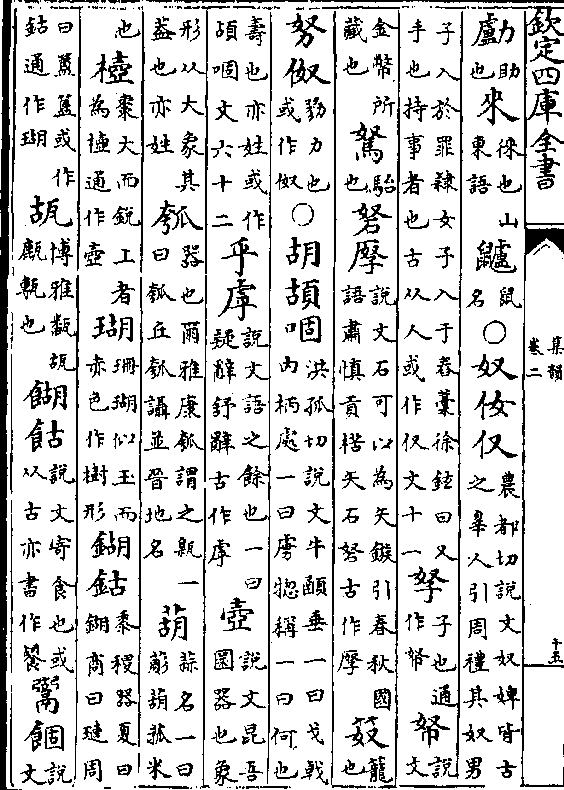 欽定四庫全書
集韻
卷二
十五
勴助也來徠也山東語鱸鼠名○奴㚢仅農都切說文奴婢皆古之辠人引周禮其奴男
子入於罪隸女子入于舂藁徐鉉曰又手也持事者也古从人或作仅文十一孥子也通作帑帑說文
金幣所藏也駑駘也砮㕆說文石可以為矢鏃引春秋國語肅慎貢楛矢石砮古作㕆籠也
努伮勠力也或作伮○胡頶咽洪孤切說文牛顄垂一曰戈戟内柄處一曰虜惣稱一曰何也
壽也亦姓或作頶咽文六十二乎虖說文語之餘也一曰疑辭舒辭古作虖壺說文昆吾圜器也象
形以大象其葢也亦姓瓠器也爾雅康瓠謂之甈一曰瓠丘瓠讘並晉地名葫蒜名一曰葫菰米
也棗大而銳上者為通作壺瑚珊瑚似玉而赤色作樹形鍸鈷黍稷器夏曰鍸商曰璉周
曰簠簋或作鈷通作瑚瓳博雅瓳甎也餬說文寄食也或从古亦書作說文